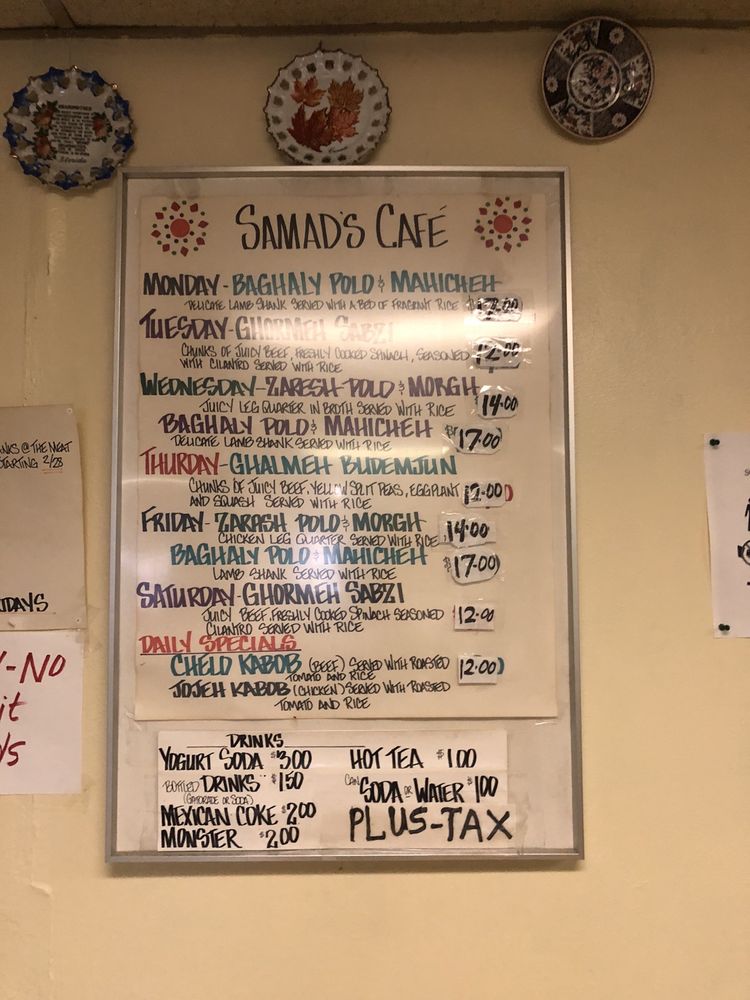 SAMAD'S CAFÉ
MONDAY - BAGHALY POLO & MAHICHEH
DELICATE LAMB SHANK SERVED WITH A BED OF FRAGRANT RICE
TUESDAY - GHORMEH SABZI
CHUNKS OF JUICY BEEF, FRESHLY COOKED SPINACH, SEASONED 12.00
WITH CILANTRO SERVED WITH RICE
WEDNESDAY - ZARESH POLO & MORGH
JUICY LEG QUARTER IN BROTH SERVED WITH RICE 14.00
BAGHALY POLO & MAHICHEH 17.00
DELICATE LAMB SHANK SERVED WITH RICE
THURDAY - GHALMEH BUDEMJUN
CHUNKS OF JUICY BEEF, YELLOW SPLIT PEAS, EGGPLANT 12.00
AND SQUASH SERVED WITH RICE
FRIDAY - ZARASH POLO & MORGH 14.00
CHICKEN LEG QUARTER SERVED WITH RICE
BAGHALY POLO & MAHICHEH $17.00
LAMB SHANK SERVED WITH RICE
SATURDAY - GHORMEH SABZI
JUICY BEEF, FRESHLY COOKED SPINACH SEASONED 12.00
CILANTRO SERVED WITH RICE
DAILY SPECIALS
CHELO KABOB (BEEF) SERVED WITH ROASTED 12.00
TOMATO AND RICE
JOJEH KABOB (CHICKEN) SERVED WITH ROASTED
TOMATO AND RICE
DRINKS
YOGURT SODA $3.00 HOT TEA $1.00
BOTTLED DRINKS $1.50 CAN SODA OR WATER $1.00
(GATORADE OR SODA)
MEXICAN COKE $2.00 PLUS-TAX
MONSTER $2.00
@ THE MEAT
STARTING 2/28
-NO
Florida